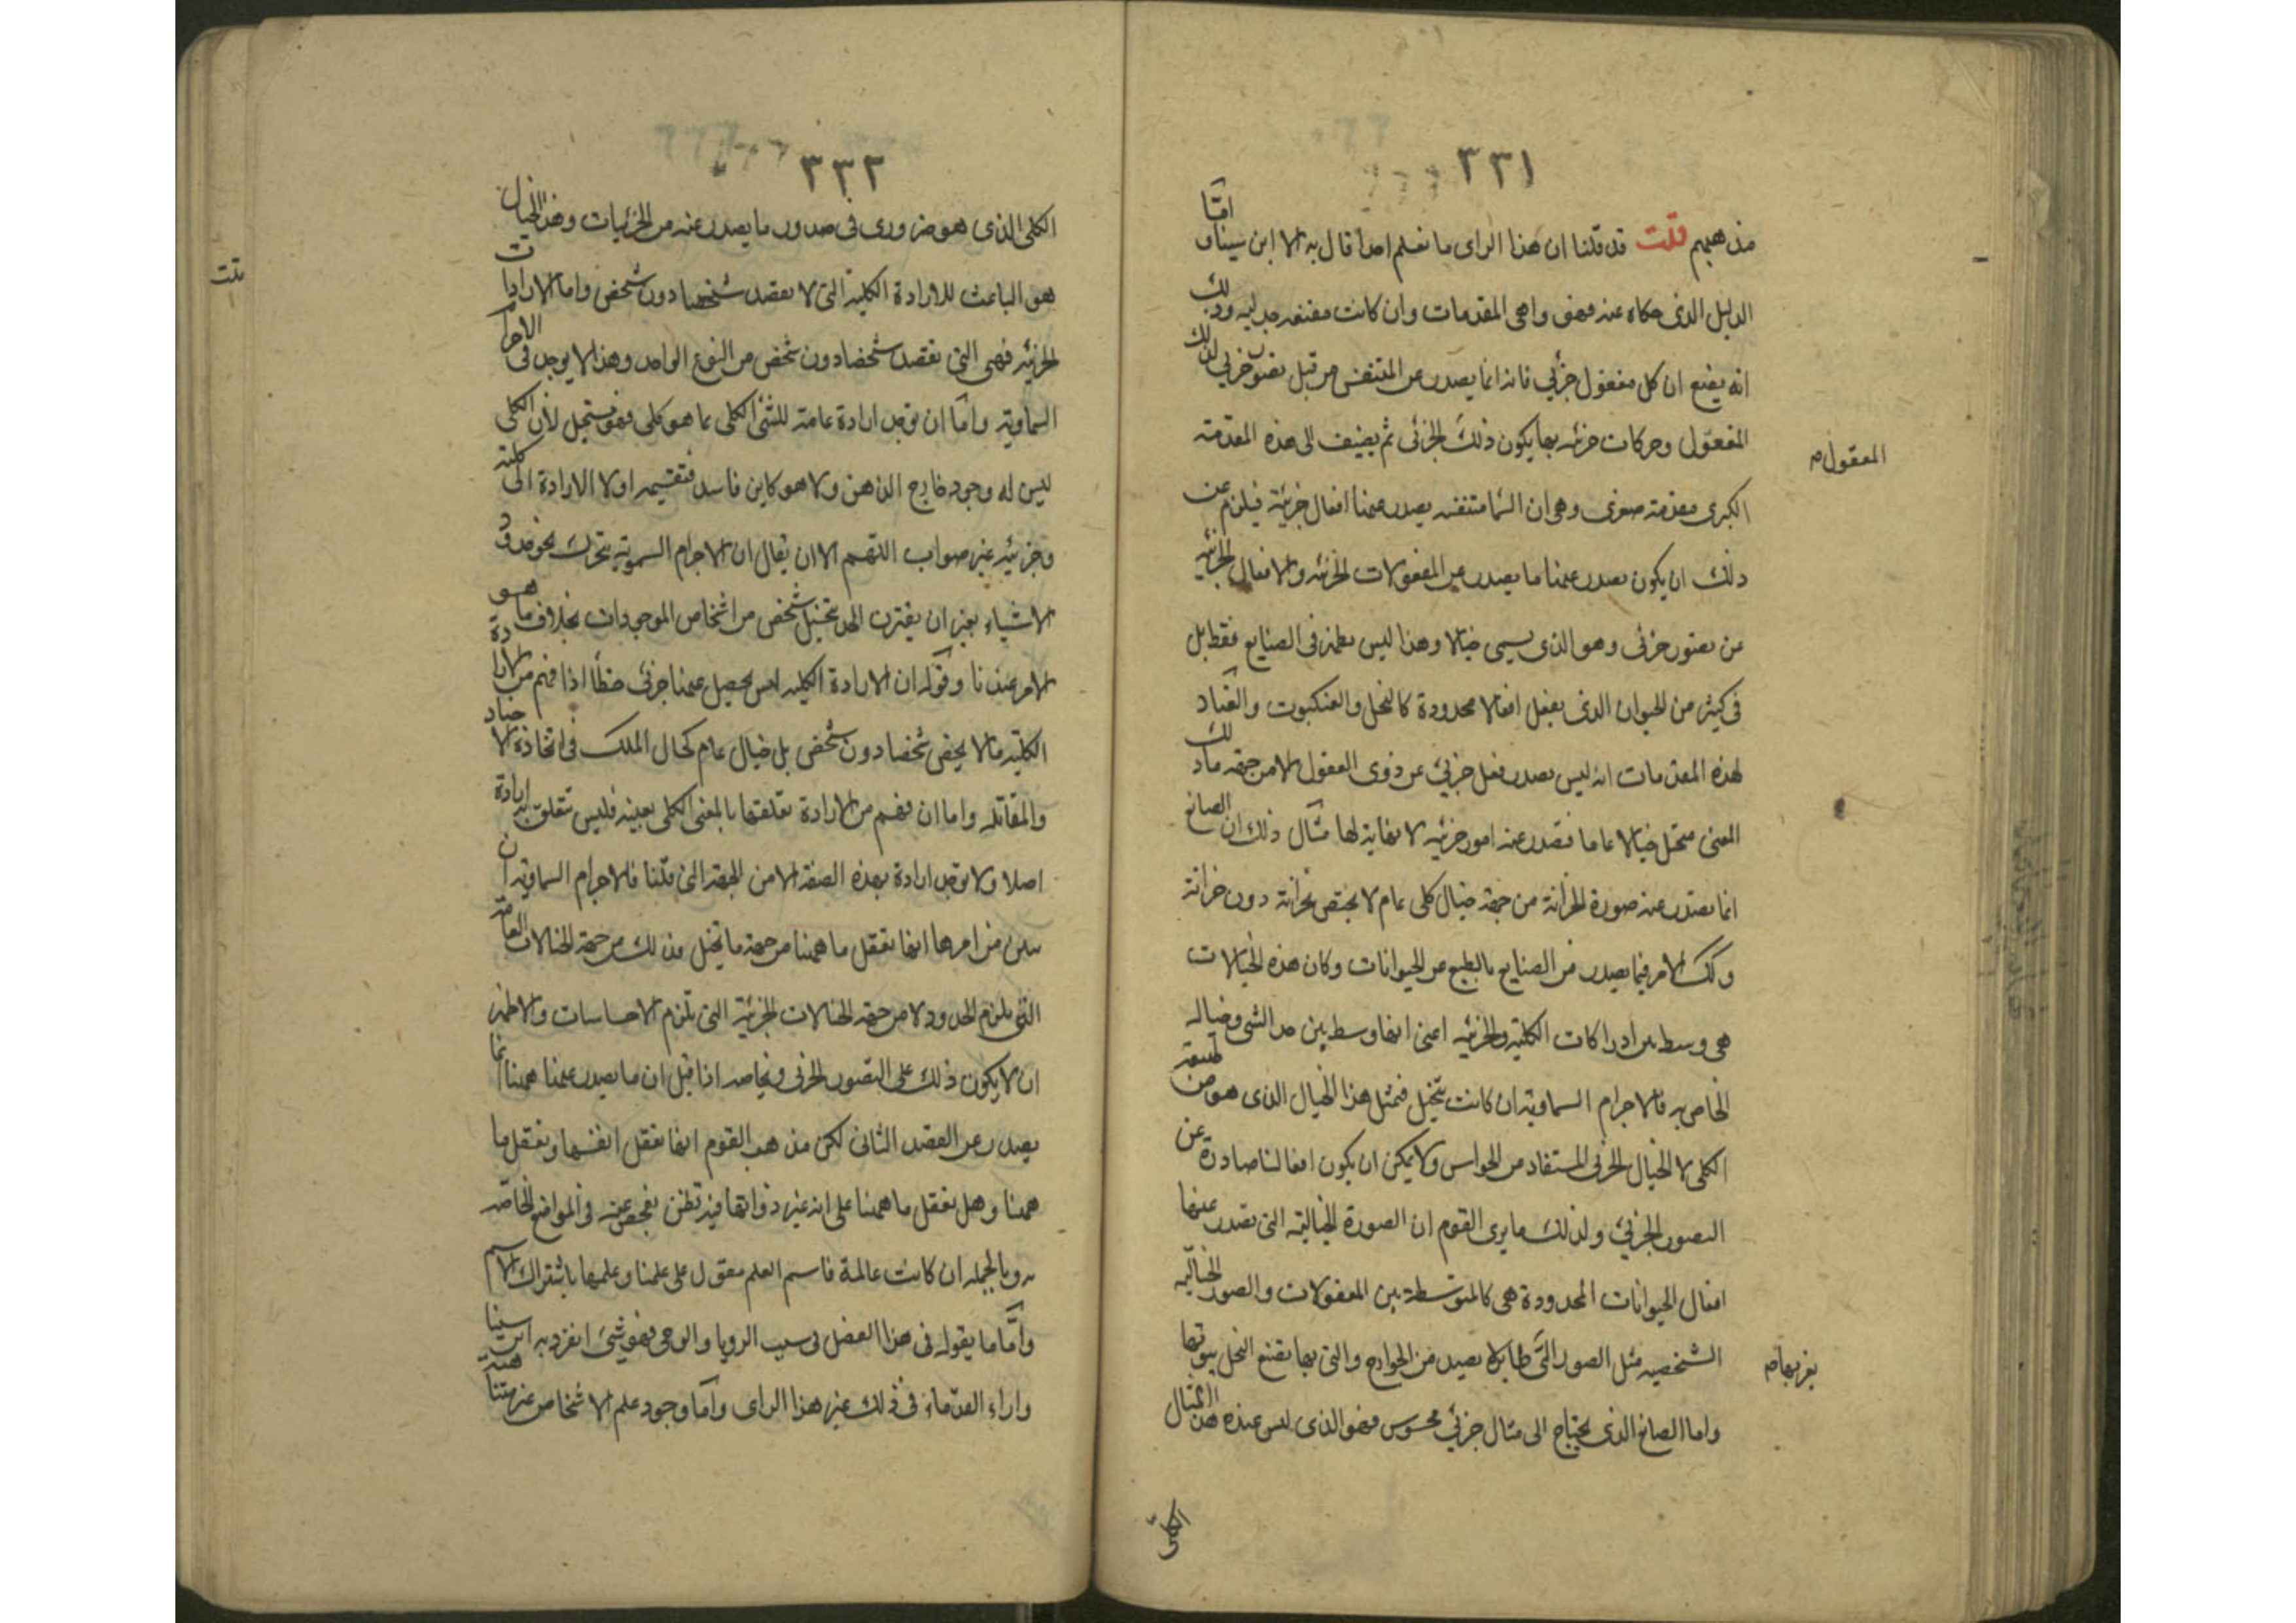 ٣٣١
مذهبهم قلت قد قلنا ان هذا الراى ما نعلم احدا قال به الا ابن سينا واما
الدليل الذى حكاه عنه فهو واهى المقدمات وان كانت مقنعه جدليه وذلك
انه يضع ان كل مفعول جزئي فانه انما يصدر عن المتنفس من قبل تصور جزئي لذلك
المفعول وحركات جزئيه بها يكون ذلك الجزئى ثم يضيف الى هذه المقدمة
المعقول
الكبرى مقدمة صغرى وهى ان السما متنفسه يصدر عنها افعال جزئية فيلزم عن
ذلك ان يكون يصدر عنها ما يصدر من المفعولات الجزئيه والافعال الجزئيه
عن تصور جزئى وهو الذى يسمى خيالا وهذا ليس يظهر فى الصنايع فقط بل
فى كثير من الحيوان الذى يفعل افعالا محدودة كالنحل والعنكبوت والعناد
لهذه المقدمات انه ليس يصدر فعل جزئي عن ذوى العقول الا من جهة ما ذلك
المعنى متخيل خيالا عاما فتصدر عنه امور جزئيه لا نهاية لها مثال ذلك ان الصانع
انما يصدر عنه صورة الخزانة من جهة خيال كلى عام لا يختص بخزانة دون خزانة
وكك الامر فيما يصدر من الصنايع بالطبع عن الحيوانات وكان هذه الخيالات
هى وسط بين ادراكات الكلية والجزئيه اعنى انها وسط بين حد الشى وخياله
الخاص به فالاجرام السماوية ان كانت تتخيل فبمثل هذا الخيال الذى هو من طبيعة
الكلى لا الخيال الجزئى المستفاد من الحواس ولا يمكن ان يكون افعالنا صادرة عن
التصور الجزئي ولذلك ما يرى القوم ان الصورة الخيالية التى تصدر عنها
افعال الحيوانات المحدودة هى كالمتوسطة بين المعقولات والصور الخيالية
الشخصيه مثل الصور التى بها يصيد من الجوارح والتى بها تصنع النحل بيوتها
يفر بها
واما الصانع الذى يحتاج الى مثال جزئي محسوس فهو الذى ليس عنده هذا المثال
الكلى
٣٣٢
الكلى الذى هو ضرورى فى صدور ما يصدر عنه من الجزئيات وهذا الخيال
هو الباعث للارادة الكلية التى لا تقصد شخصا دون شخص واما الارادات
قلت
الجزئيه فهى التى تقصد شخصا دون شخص من النوع الواحد وهذا لا يوجد فى الاجرام
السماوية واما ان توجد ارادة عامة للشئ الكلى بما هو كلى فهو مستحيل لأن الكلى
ليس له وجود خارج الذهن ولا هو كاين فاسد فتقسيمه اولا الارادة الى كلية
وجزئيه غير صواب اللهم الا ان يقال ان الاجرام السموية تتحرك نحو حدود
الاشياء بغير ان يقترن الحد بتخيل شخص من اشخاص الموجودات بخلاف ما هو
الامر عندنا وقوله ان الارادة الكليه ليس يحصل عنها جزئى خطأ اذا فهم من الارادة
الكلية ما لا يخص شخصا دون شخص بل خيال عام كحال الملك فى اتخاذه الاجناد
والمقاتله واما ان فهم من الارادة تعلقها بالمعنى الكلى بعينه فليس تتعلق به ارادة
اصلا ولا توجد ارادة بهذه الصفة الا من الجهة التى قلنا فالاجرام السماوية ان
تبين من امرها انها تعقل ما ههنا من جهة ما تتخيل فذلك من جهة الخيالات العامة
التى تلزم الحدود لا من جهة الخيالات الجزئية التى تلزم الاحساسات والاظهر
ان لا يكون ذلك على التصور الجزئى وبخاصه اذا قيل ان ما يصدر عنها ههنا انما
يصدر عن القصد الثانى لكن مذهب القوم انها تعقل انفسها وتعقل ما
ههنا وهل تعقل ما ههنا على انه غير ذواتها فيه نظر يفحص عنه فى المواضع الخاصه
به وبالجمله ان كانت عالمة فاسم العلم مقول على علمنا وعلمها باشتراك الاسم
واما ما يقوله فى هذا الفصل فى سبب الرويا والوحى فهو شئ انفرد به ابن سينا
واراء القدماء فى ذلك غير هذا الراى واما وجود علم الاشخاص غير متناهية